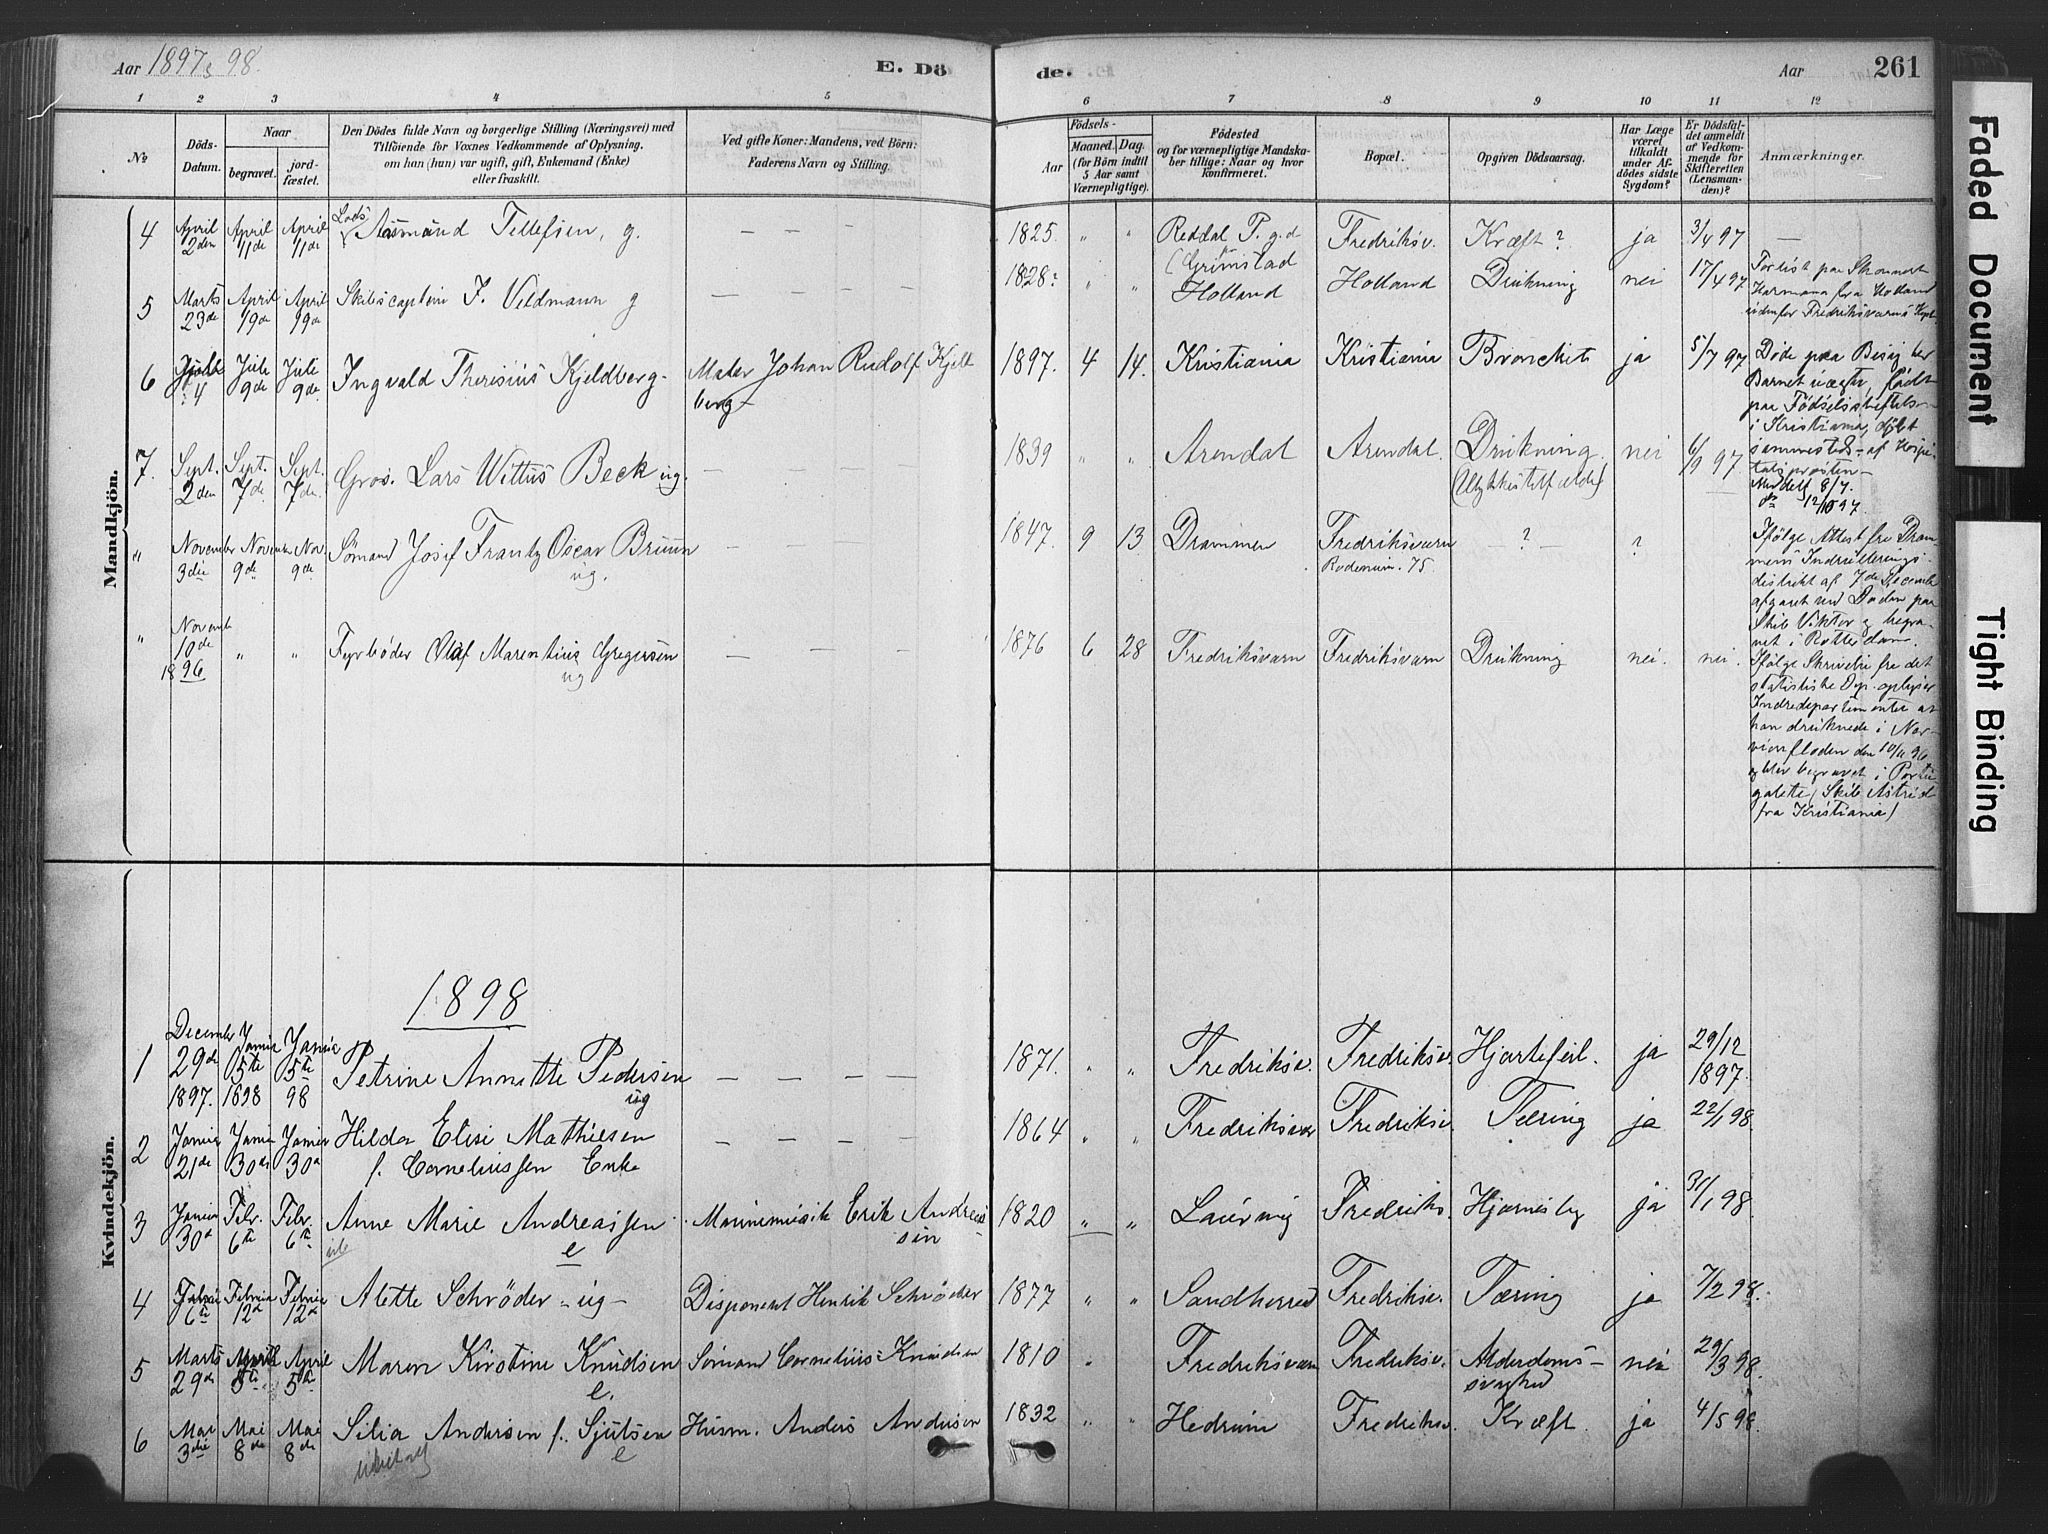 Aar 1897, 98.
E. Dö
de.
Aar
261
1 2 3 4 5 6 7 8 9 10 11 12
No
Döds-Datum.
Naar
begravet.
jord-fæstet.
Den Dödes fulde Navn og borgerlige Stilling (Næringsvei) med
Tilföiende for Voxnes Vedkommende af Oplysning.
om han (hun) var ugift, gift, Enkemand (Enke)
eller fraskilt.
Ved gifte Koner: Mandens, ved Börn:
Faderens Navn og Stilling.
Födsels-
Aar
Maaned. Dag.
(for Börn indtil
5 Aar samt
Værnepligtige).
Födested
og for værnepligtige Mandska-
ber tillige: Naar og hvor
konfirmeret.
Bopæl.
Opgiven Dödsaarsag.
Har Læge
været
tilkaldt
under Af-
dödes sidste
Sygdom?
Er Dödsfal-
det anmeldt
af Vedkom-
mende for
Skifteretten
(Lensman-
den)?
Anmærkninger.
Mandkjön.
4 April 2den April 11de April 11de Lods Aasmund Tellefsen, g. — — — 1825. " " Reddal P. g.d (Grimstad Fredriksv. Kræft? ja 3/4 97 —
5 Marts 23de April 19de April 19de Skibscaptein F. Veldmann g — — — 1828? " " Holland Holland Drukning nei 17/4 97 Forlist paa Skonnert
Harmana fra Holland
udenfor Fredriksværns
6 Juli 4 Juli 9de Juli 9de Ingvald Theresius Kjeldberg- Maler Johan Rudolf Kjeld
berg 1897. 4 14. Kristiania Kristiania Bronchit ja 5/7 97 Døde paa Besøg her
Barnet uægte, født
paa Fødselsstiftelsen
i Kristiania, døbt
sammesteds af Hospi-
talspresten—
Meddelt 8/7.
do 12/10 97.
7. Sept. 2den Sept. 7de Sept. 7de Gros. Lars Wittus Beck ug. — 1839 " " Arendal Arendal. Drukning. (Ulykkestilfælde) nei 6/9 97
" November 3die November 9de Nov. 9de Sømand Josef Frantz Oscar Bruun
ug. — — — 1847. 9 13 Drammen Fredriksværn
Rodenum. 75 — ? — ? Ifölge Attest fra Dram-
mens Indrulerings-
distrikt af 7de Decemb.
afgaaet ved Døden paa
Skib Viktor og begra-
vet i Rotterdam.
" Novemb 10de 1896 " " Fyrbøder Olaf Marentius Gregersen
ug — — — 1876 6 28 Fredriksværn Fredriksværn Drukning nei. nei. Ifølge Skrivelse fra det
statistiske oplyser
Indredepartementet at
han druknede i Ner-
vionfloden den 10/11 96
og blev begravet i Portu-
galette (Skib Astrid
fra Kristiania)
Kvindekjön.
1898
1 December 29de 1897. Januar 5te 1898 Januar 5te 98 Petrine Annette Pedersen
ug — — — — 1871. " " Fredriksv. Fredriksv. Hjertefeil. ja 29/12 1897.
2 Januar 21de Januar 30de Januar 30de Hilda Elise Mathiesen
f. Corneliussen Enke — — — — 1864 " " Fredriksvær Fredriksv. Tæring ja 22/1 98.
3 Januar 30de Febr. 6te Febr. 6te Anne Marie Andreassen
e Marinemusik Erik Andreas
sen 1820 " " Laurvig Fredriks. Hjerneslag ja 31/1 98.
4 Februar 6te Februar 12de Februar 12de Alette Schrøder - ug - Disponent Henrik Schrøder 1877 " " Sandherred Fredriksv. Tæring ja 7/2 98.
5 Marts 29de April 5te April 5te Maren Kirstine Knudsen
e. Sømand Cornelius Knudsen 1810 " Fredriksværn Fredriksv. Alderdoms-
svaghed nei 29/3 98.
6 Mai 3die Mai 8de Mai 8de Silia Andersen f. Sjulsen
e Husm. Anders Andersen 1832 " " Hedrum Fredriksv. Kræft. ja 4/5 98.
Faded Document
Tight Binding